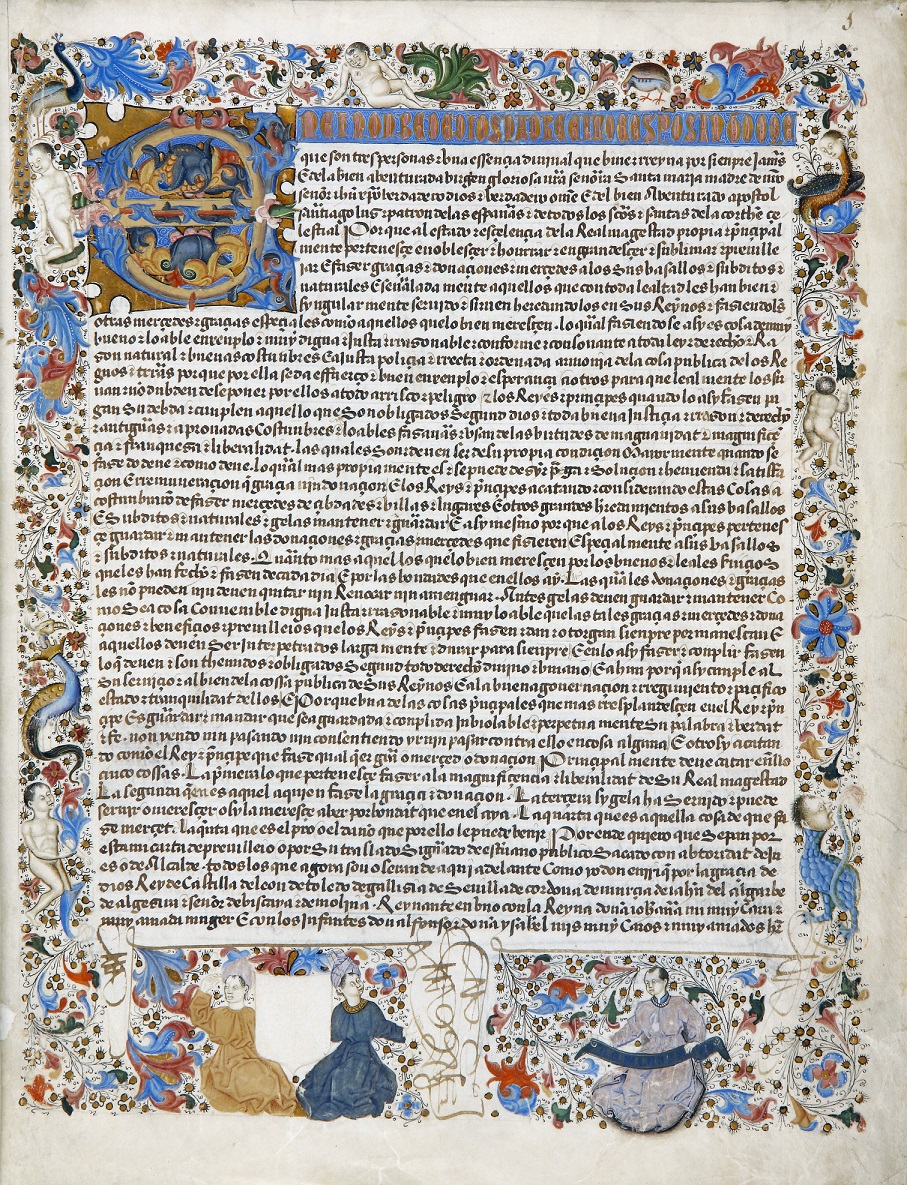 EN EL NONBRE DE DIOS PADRE E FIJO E ESPO SANTO
que son tres personas ⁊ vna essençia diuinal que biue ⁊ reyna por sienpre Jamas
E de la bien abenturada birgen gloriosa nra señora Santa maria madre de nro
señor ihu xpo berdadero dios ⁊ berdadero ome E del bien Abenturado apostol
santiago lus ⁊ patron de las españas ⁊ de todos los scos ⁊ santas de la corthe çe
lestial Por que al estado ⁊ esçelençia de la Real magestad propia ⁊ prinçipal
mente pertenesçe ennoblesçer ⁊ hourrar ⁊ engrandesçer ⁊ sublimar ⁊ preuille
iar E faser graçias ⁊ donaçiones ⁊ merçedes a los Sus basallos ⁊ subditos ⁊
naturales E señalada mente aquellos que con toda lealtad les han bien ⁊
syngular mente seruido ⁊ siruen heredandolos en Sus Reynos ⁊ fasiendoles
otras merçedes ⁊ graçias espeçiales como aquellos que lo bien meresçen. lo qual fasiendo se asy es cosa de muy
bueno ⁊ loable enxenplo ⁊ muy digna ⁊ Justa ⁊ rrasonable ⁊ conforme ⁊ consonante a toda ley de derecho ⁊ Ra
son natural ⁊ buenas costunbres E a justa poliçia ⁊ rrecta ⁊ ordenada armonia de la cosa publica de los Re
gnos ⁊ trras por que por ella se da esfuerço ⁊ buen enxenplo ⁊ esperança a otros para que leal mente los sir
uan ⁊ no dubden de se poner por ellos a todo arrisco ⁊ peligro E los Reyes ⁊ prinçipes quando lo asy fasen pa
gan Su debda ⁊ cunplen aquello que Son obligados Segund dios ⁊ toda buena Justiçia ⁊ rrason ⁊ derecho
⁊ antiguas ⁊ aprouadas Costunbres ⁊ loables fasañas ⁊ vsan de las birtudes de magnanidat ⁊ magnifiçe
çia ⁊ franquesa ⁊ liberalidat. las quales Son deuen ser de su propia condiçion Mayormente quando se
fase do deue ⁊ como deue. lo qual mas propia mente es ⁊ se puede desyr paga ⁊ Soluçion ⁊ hemienda ⁊ satisfa
çion E rremuneraçion que graçia nin donaçion E los Reys ⁊ prinçipes acatando ⁊ considerando estas Cosas a
costunbraro de faser merçedes de çibdades ⁊ billas ⁊ lugares E otros grandes heredamientos a sus basallos
E Subditos ⁊ naturales ⁊ ge las mantener ⁊ guardar E asy mesmo por que a los Reys ⁊ prinçipes pertenes
çe guardar ⁊ mantener las donaçiones ⁊ graçias ⁊ merçedes que fisieren Espeçial mente a sus basallos
⁊ subditos ⁊ naturales. Quanto mas a aquellos que lo bien meresçen por los buenos ⁊ leales seruiçios
que les han fecho ⁊ fasen de cada dia E por las bondades que en ellos ay. Las quales donaçiones ⁊ graçias
les no pueden nin deuen quitar nin Reuocar nin amenguar. Antes ge las deuen guardar ⁊ mantener Co
mo Sea cosa Conuenible digna Justa ⁊ rrasonable ⁊ muy loable que las tales graçias ⁊ merçedes ⁊ dona
çiones ⁊ benefiçios ⁊ preuilleios que los Reys ⁊ prinçipes fasen ⁊ dan ⁊ otorgan sienpre permanescan E
aquellos deuen Ser interpetrados larga mente ⁊ durar para sienpre E en lo asy faser ⁊ conplir fasen
lo que deuen ⁊ son thenudos ⁊ obligados Segund todo derecho diuino ⁊ humano E a bnn por que asy cunple a
Su seruiçio ⁊ al bien de la cossa publica de Sus Reynos E a la buena gouernaçion ⁊ rregimiento ⁊ paçifico
estado ⁊ tranquilidat dellos E Por que bna de las cosas prinçipales que mas rresplandesçen en el Rey ⁊ prin
çipe Es guardar ⁊ mandar que sea guardada ⁊ conplida Inbiolable ⁊ perpetua mente Su palabra ⁊ berdat
⁊ fe. non yendo nin pasando nin consentiendo yr nin pasar contra ello en cosa alguna E otrosy acatan
do como el Rey ⁊ prinçipe que fase qual quier graçia o merçed o donaçion Prinçipal mente deue catar en ello
çinco cossas. La primera lo que pertenesçe faser a la magnifiçençia ⁊ liberalidat de Su Real magestad
La segunda quien es aquel a quien fase la graçia ⁊ donaçion. La terçera sy ge la ha Seruido ⁊ puede
seruir o meresçer o sy la meresçe aber por bondat que en el aya. La quarta que es aquella cosa de que fa
se merçet. La quinta que es el pro o el daño que por ello le puede benir Por ende quiero que Sepan por
esta mi carta de preuilleio o por Su traslado Signado de escriuano publico Sacado con abtoridat de Jues
o de Alcalde. todos los que agora son o seran de aqui adelante Como yo don enrriq por la graçia de
dios Rey de Castilla de leon de toledo de gallisia de Seuilla de cordoua de murçia de iahen del algarbe
de algesira ⁊ señor de biscaya ⁊ de molina. Reynante en bno con la Reyna doña iohana mi muy Cara ⁊
muy amada muger E con los infantes don alfonso ⁊ doña ysabel mis muy Caros ⁊ muy amados hros